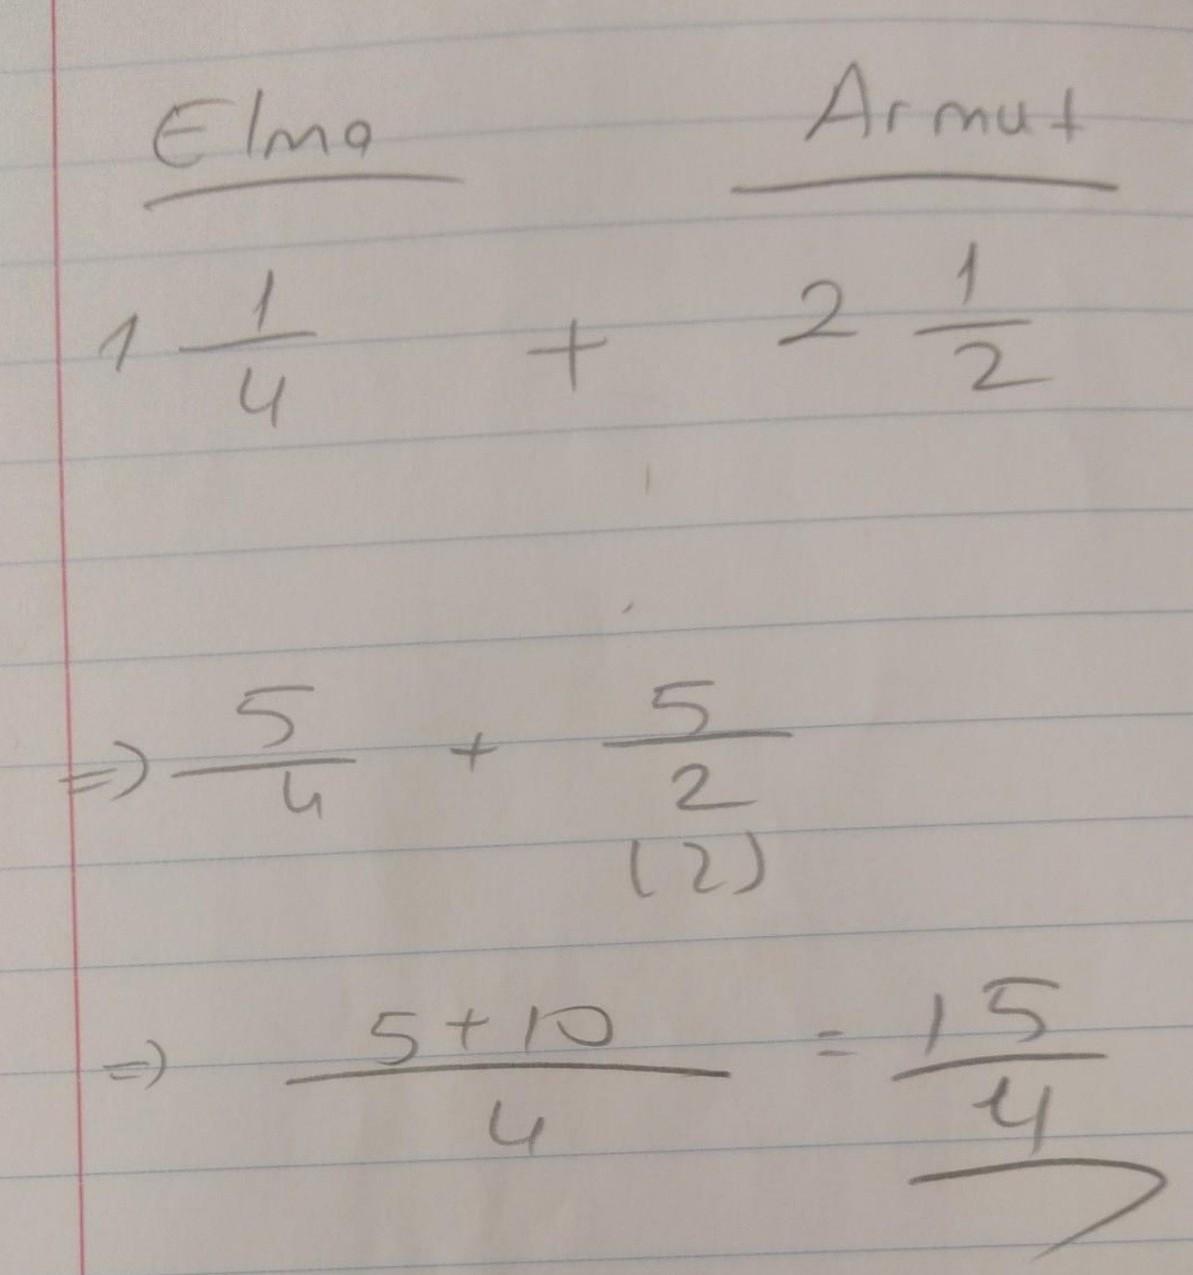 Elma Armut
1 1/4 + 2 1/2
⇒ 5/4 + 5/2
(2)
⇒ 5+10/4 = 15/4